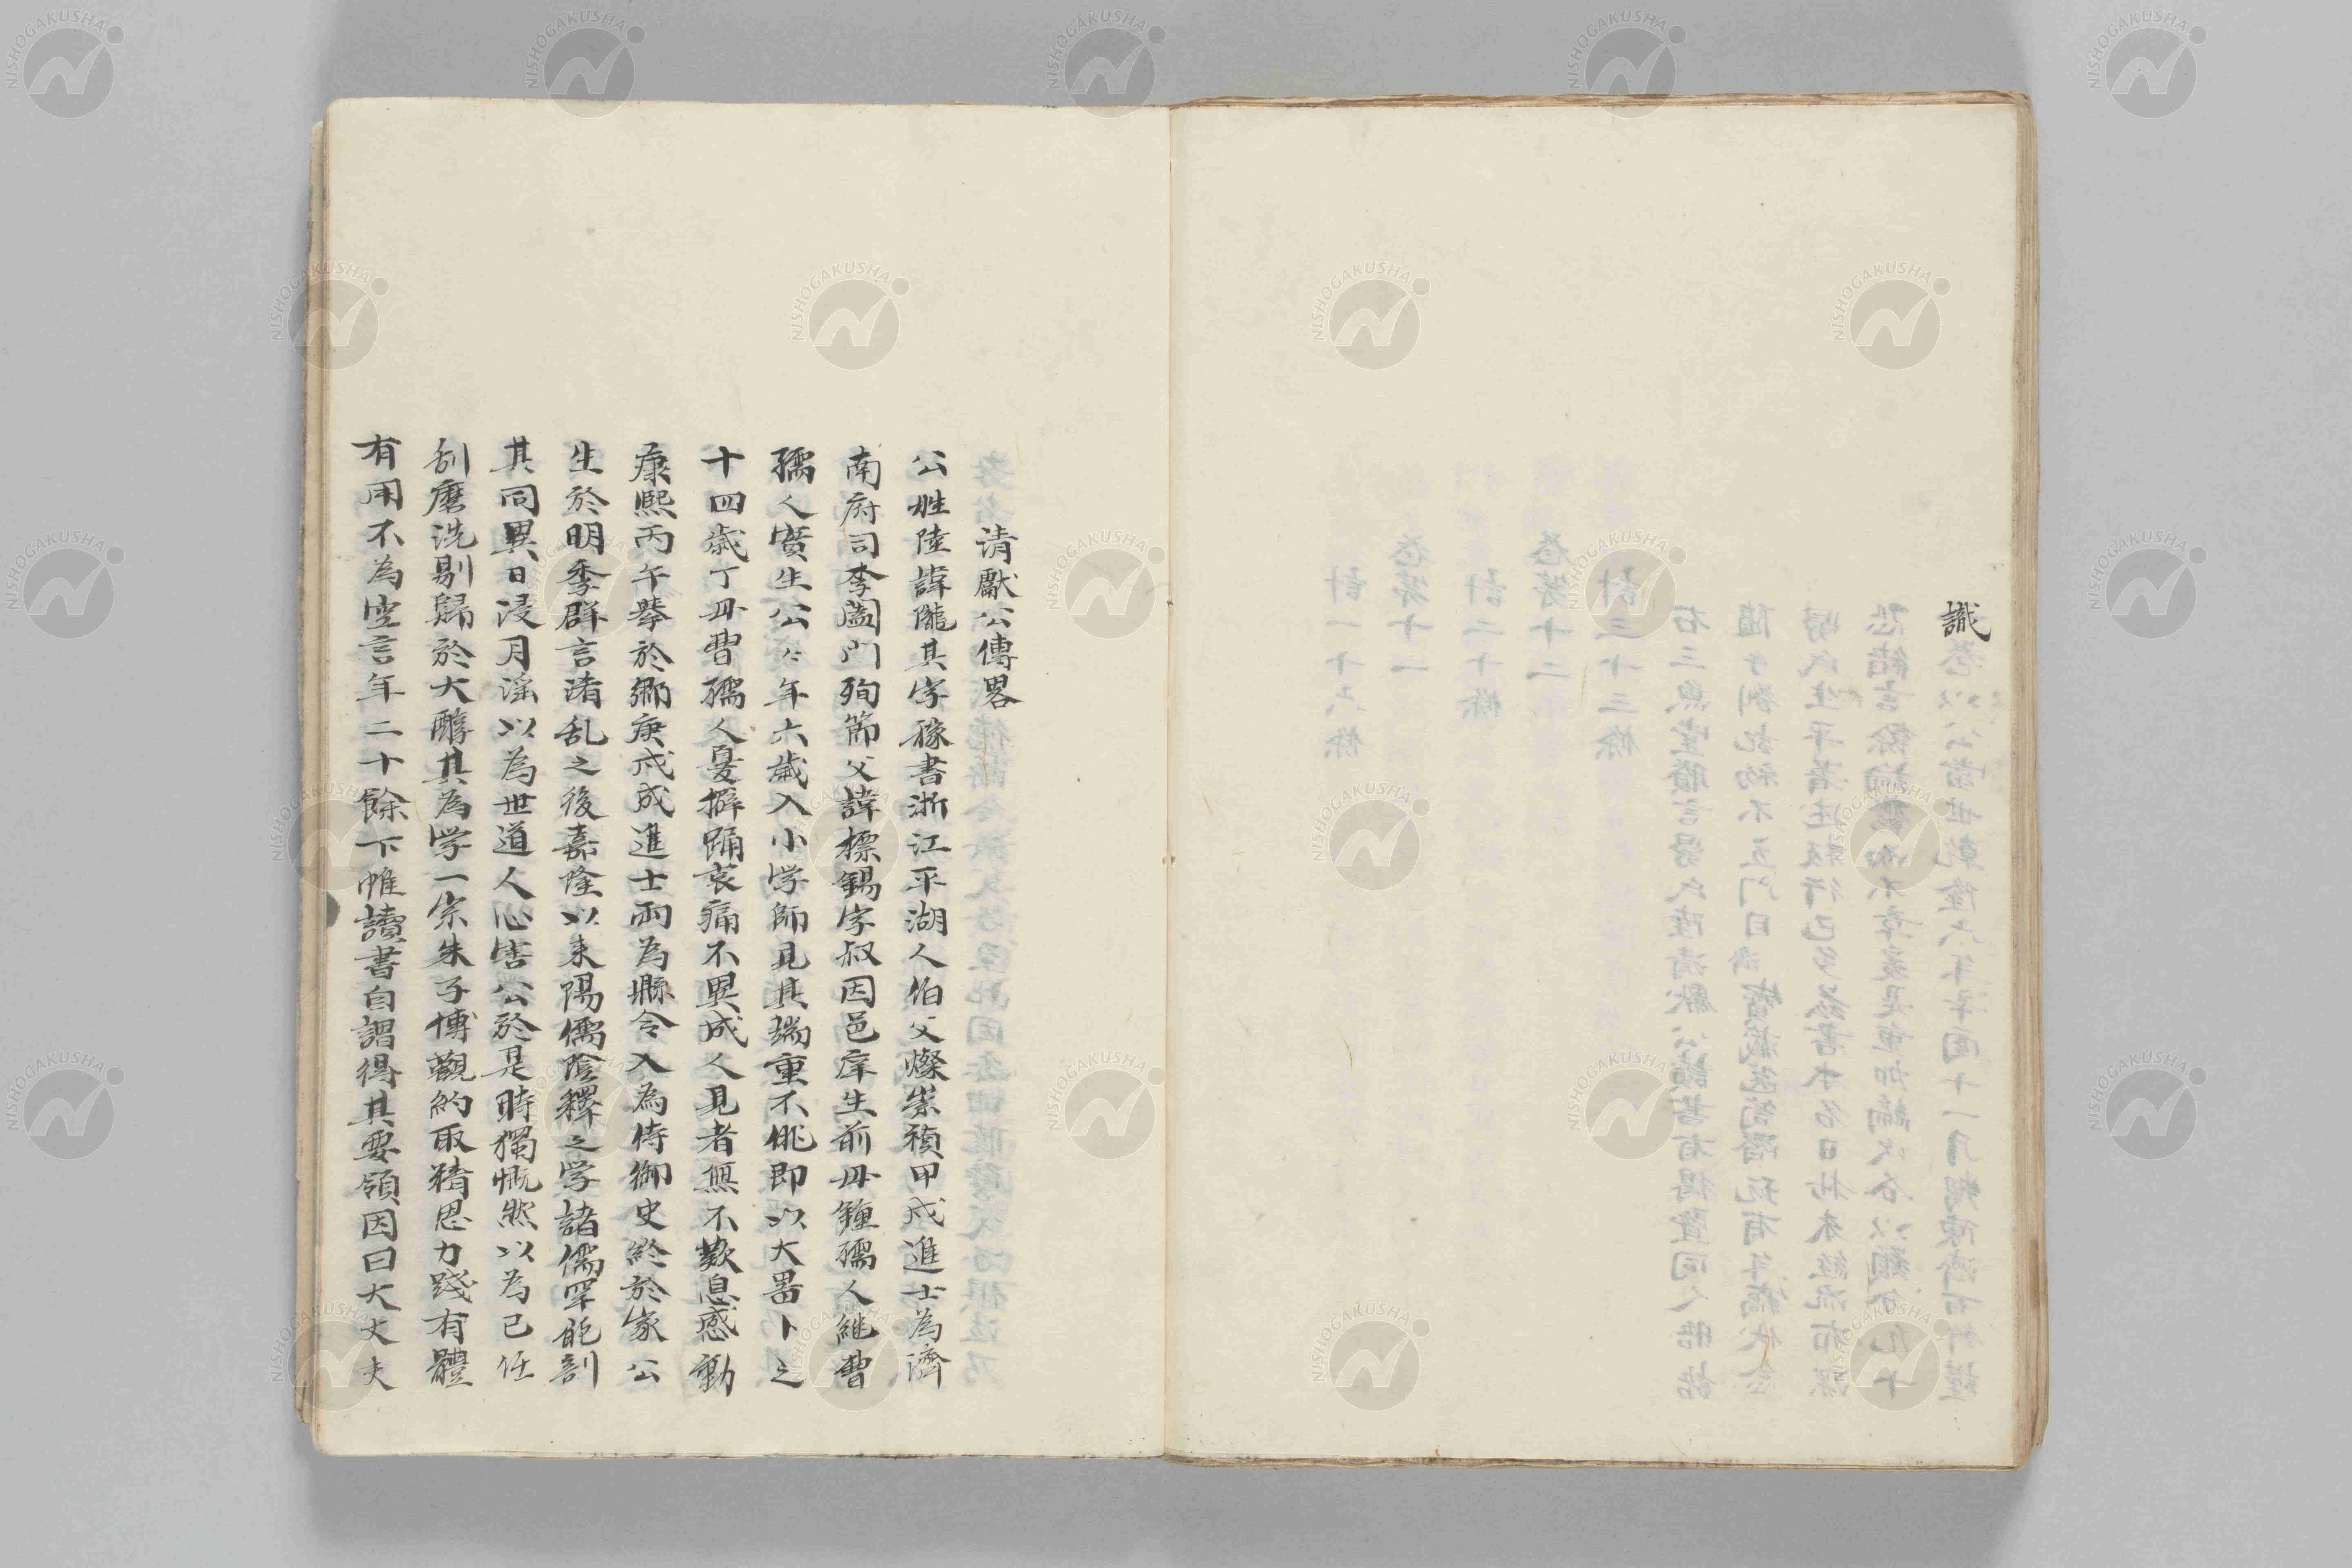 識
清獻公傳畧
公姓陸諱隴其字稼書浙江平湖人伯父燦崇禎甲戌進士為濟
南府司李闔門殉節父諱標錫字叔因邑庠生前毋鍾孺人継曹
孺人實生公公年六歳入小学師見其端重不佻即以大畧卜之
十四歳丁毋曹孺人憂擗踊哀痛不異成人見者無不歎息感動
康熙丙午舉於鄉庚戌成進士兩為縣令入為侍御史終於家公
生於明季群言淆乱之後嘉隆以来陽儒陰釋之学諸儒罕能剖
其同異日浸月滛以為世道人心害公於是時獨慨然以為已任
刮磨洗剔歸於大醇其為学一宗朱子博觀約取精思力踐有體
有用不為空言年二十餘下帷讀書自謂得其要領因曰大丈夫
NISHOGAKUSHA